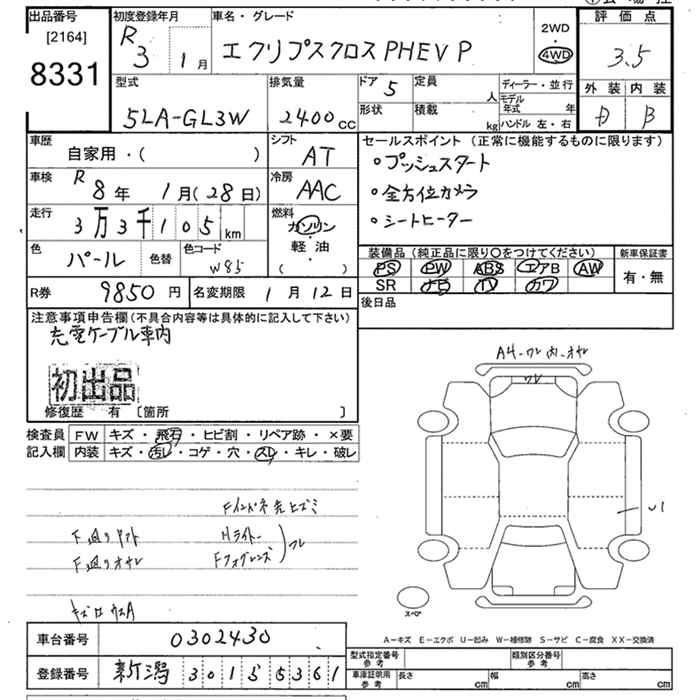 出品番号
[2164]
8331
初度登録年月
R
3 1月
車名・グレード
エクリプスクロス PHEV P
2WD
・
4WD
評価点
3.5
外装 内装
B
型式
5LA-GL3W
排気量
2400cc
ドア 5
形状
定員
人
積載
kg
ディーラー・並行
モデル年式 年
ハンドル 左・右
車歴
自家用・( )
シフト
AT
車検
R 8年 1月(28日)
冷房
AAC
走行
3万3千105km
燃料
ガソリン
軽・油
( )
色
パール
色替
色コード
W85
セールスポイント(正常に機能するものに限ります)
・プッシュスタート
・全方位カメラ
・シートヒーター
装備品(純正品に限り○をつけてください)
PS PW ABS エアB AW
SR ナビ TV カワ
新車保証書
有・無
R券 9850円
名変期限 1月12日
後日品
注意事項申告欄(不具合内容等は具体的に記入して下さい)
充電ケーブル車内
初出品
修復歴 有 [箇所 ]
検査員
記入欄
FW キズ・飛石・ヒビ割・リペア跡・×要
内装 キズ・汚レ・コゲ・穴・スレ・キレ・破レ
Hライト
Fフォグレンズ
スペア
A−キズ E−エクボ U−凹み W−補修跡 S−サビ C−腐食 XX−交換済
車台番号 0302430
登録番号 新潟 301 5 5361
型式指定番号
参考
類別区分番号
参考
車庫証明用
参考
長さ cm
幅 cm
高さ cm